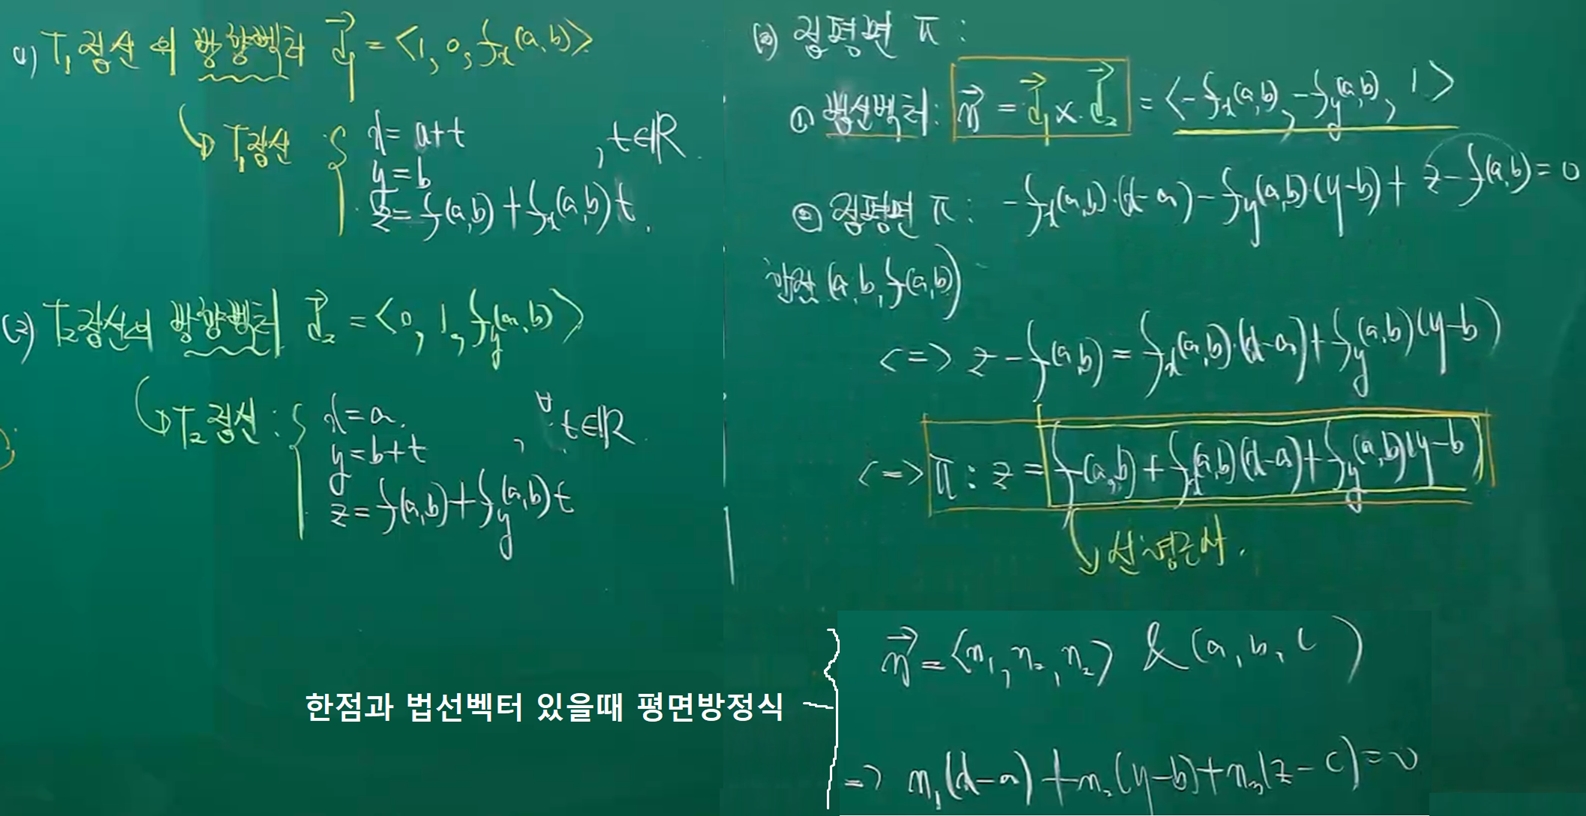 (1) T₁접선의 방향벡터 d₁⃗ = <1, 0, fₓ(a,b)>
↳ T₁접선 { x = a+t
y = b , t∈ℝ
z = f(a,b) + fₓ(a,b)t.
(2) T₂접선의 방향벡터 d₂⃗ = <0, 1, f_y(a,b)>
↳ T₂접선 : { x = a.
y = b+t , ∀t∈ℝ
z = f(a,b) + f_y(a,b)t
(3) 접평면 π :
① 법선벡터 : n⃗ = d₁⃗ × d₂⃗ = <-fₓ(a,b), -f_y(a,b), 1>
② 접평면 π : -fₓ(a,b)·(x-a) - f_y(a,b)(y-b) + z - f(a,b) = 0
한점(a,b,f(a,b))
<=> z - f(a,b) = fₓ(a,b)·(x-a) + f_y(a,b)(y-b)
<=> π : z = f(a,b) + fₓ(a,b)(x-a) + f_y(a,b)(y-b)
↳ 선형근사.
한점과 법선벡터 있을때 평면방정식
n⃗ = <n₁, n₂, n₂> & (a, b, c)
=> n₁(x-a) + n₂(y-b) + n₃(z-c) = 0